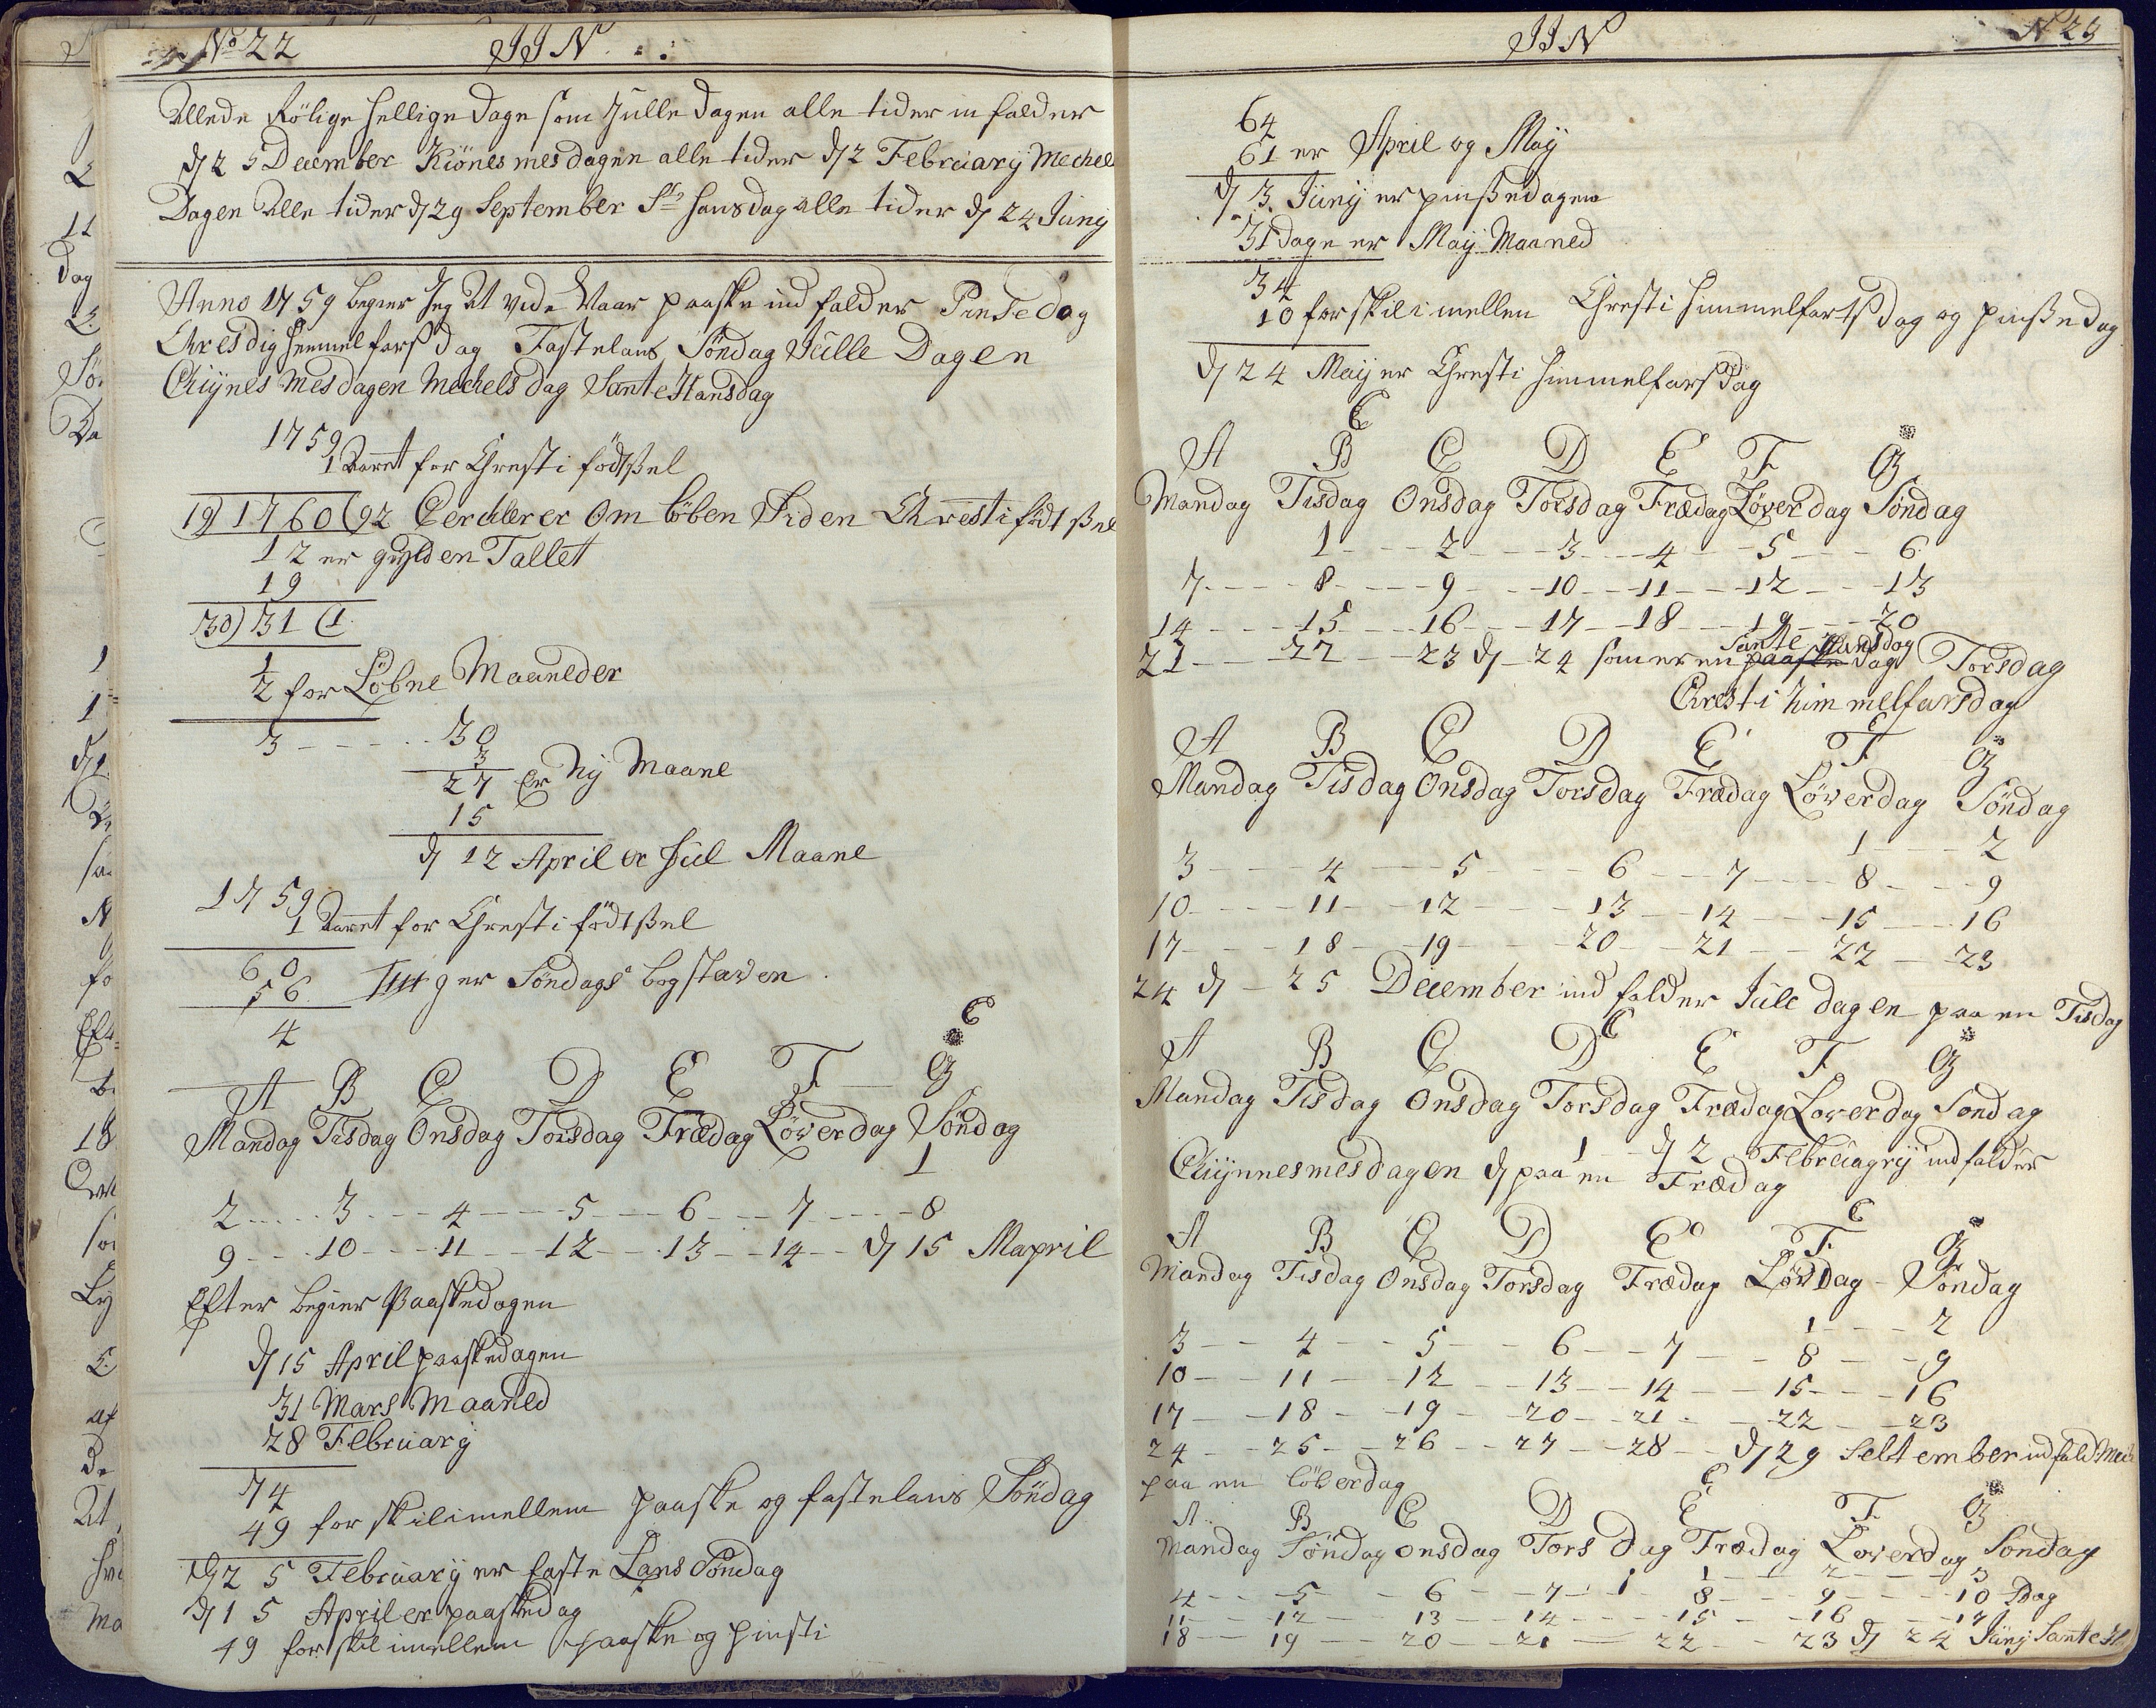 No 22 JJN
Allede Rölige hellige dage som Julle dagen alle tider in falder
d 25 December Kiönes mes dagen alle tider d 2 February Mechel
Dagen Alle tider d 29 September St hansdag alle tider d 24 Juny
Anno 1759 begier Jeg At vide Naar paaske ind falder PinSedag
Chresdig hemmelfarsdag Fastelans Söndag Julle Dagen
Chÿnes Mes dagen Mechels dag Sante Hansdag
1759
1 Aaret for Chresti födtßel
19) 1760 (92 Cercler er Om Löben Siden Chresti födtßel
12 er gylden Tallet
19
30) 31 (1
1
2 for Löbne Maaneder
3 - - - - 30
3
27 Er Nÿ Maane
15
d 12 April er ful Maane
1759
1 Aaret for Chresti födtßel
60
56 g er Söndags bogstaven
4
E
A B C D E F G
Mandag Tisdag Onsdag Torsdag Frædag Löverdag Söndag
1
2 - - - 3 - - - 4 - - - 5 - - - 6 - - - 7 - - - 8
9 - - - 10 - - - 11 - - - 12 - - - 13 - - - 14 - - d 15 Mapril
Efter begier Paaskedagen
d 15 April paaskedagen
31 Mars Maaned
28 February
74
49 for skilimellem paaske og fastelans Söndag
d 25 February er faste Lans Söndag
d 15 April er paaskedag
49 for skilimellem paaske og pinsti
JJN N 23
64
61 er April og Maÿ
d 3 Junÿ er pinßedagen
31 dage er Maÿ Maaned
34
10 forskilimellen Chresti himmelfartsdag og pinßedag
d 24 Maÿ er Chresti himmelfarsdag
E
A B C D E F G
Mandag Tisdag Onsdag Torsdag Frædag Löverdag Söndag
1 - - - 2 - - - 3 - - - 4 - - - 5 - - - 6
7 - - - 8 - - - 9 - - - 10 - - - 11 - - - 12 - - - 13
14 - - - 15 - - - 16 - - - 17 - - - 18 - - - 19 - - - 20
Sante Hansdag
21 - - - 22 - - - 23 d 24 som er en paaske dag Torsdag
Chresti himmelfarsdag
E
A B C D E F G
Mandag Tisdag Onsdag Torsdag Frædag Löverdag Söndag
1 - - - 2
3 - - - 4 - - - 5 - - - 6 - - - 7 - - - 8 - - - 9
10 - - - 11 - - - 12 - - - 13 - - - 14 - - - 15 - - - 16
17 - - - 18 - - - 19 - - - 20 - - - 21 - - - 22 - - - 23
24 d - 25 December ind falder Jule dagen paa en Tisdag
E
A B C D E F G
Mandag Tisdag Onsdag Torsdag Frædag Loverdag Sondag
1 - - d 2 Februagrÿ ind falder
Chÿnnesmesdagen d paa en Frædag
E
A B C D E F G
Mandag Tisdag Onsdag Torsdag Frædag LövDag - Söndag
1 - - - 2
3 - - - 4 - - - 5 - - - 6 - - - 7 - - - 8 - - - 9
10 - - - 11 - - - 12 - - - 13 - - - 14 - - - 15 - - - 16
17 - - - 18 - - - 19 - - - 20 - - - 21 - - - 22 - - - 23
24 - - - 25 - - - 26 - - - 27 - - - 28 - - - d 29 Seltember indfald
paa en löverdag
E
A B C D E F G
Mandag Söndag Onsdag Torsdag Frædag Loverdag Söndag
1 - - - 2 - - - 3
4 - - - 5 - - - 6 - - - 7 - - - 8 - - - 9 - - - 10 Dag
11 - - - 12 - - - 13 - - - 14 - - - 15 - - - 16 - - - 17
18 - - - 19 - - - 20 - - - 21 - - - 22 - - - 23 d 24 Junÿ Sante H